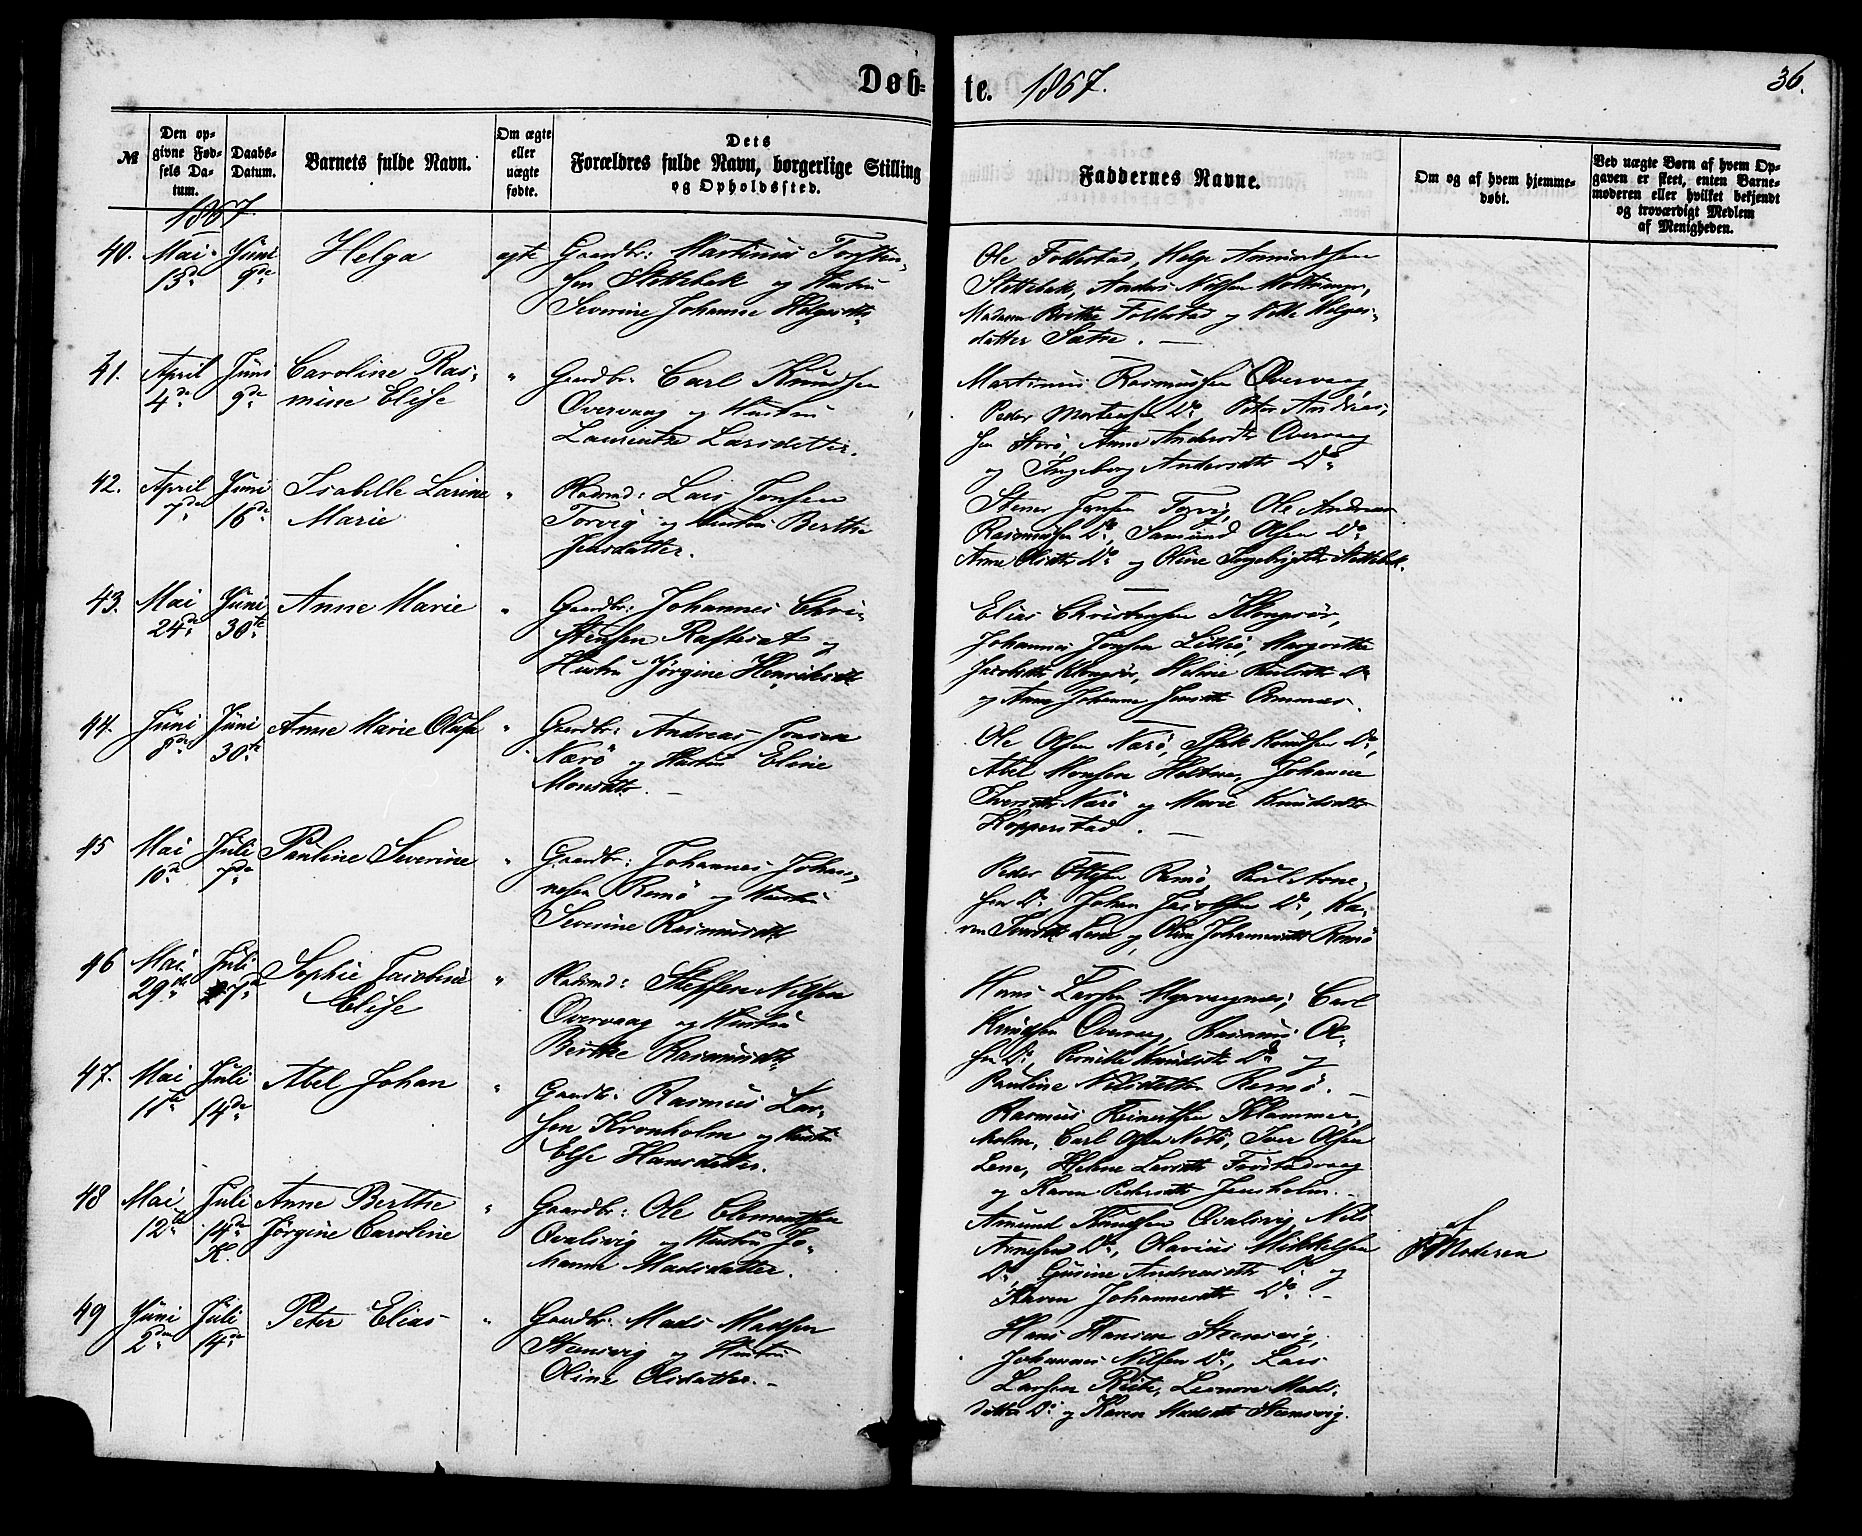 Døbte. 1867. 36.
№
Den opgivne Fødsels Datum.
Daabs-Datum.
Barnets fulde Navn.
Om ægte eller uægte fødte.
Dets Forældres fulde Navn, borgerlige Stilling og Opholdssted.
Faddernes Navne.
Om og af hvem hjemmedøbt.
Ved uægte Børn af hvem Opgaven er skeet, enten Barnemoderen eller hvilket bekjendt og troværdigt Medlem af Menigheden.
1867
40. Mai 15de Juni 9de Helga ægte Gaardbr: Martinus Torsten-
sen Stokkebak og Hustru
Severine Johanne Helgesdtr
Ole Follestad, Helge Amundsen
Stokkebak, Anders Nilsen
Madame Follestad og Helges-
datter Sætre. —
41. April 4de Juni 9de Caroline Ras-
mine Elise " Gaardbr: Carl Knudsen
Overvaag og Hustru
Laurentze Larsdatter.
Martinus Rasmussen Overvaag,
Peder Mortensen Do, Peter Andreas-
sen Storø, Anne Andersdtr Overvaag
og Ingeborg Andersdtr Do
42. April 7de Juni 16de Isabelle Larine
Marie " Pladsmd: Lars Jensen
Torvig og Hustru Berthe
Jensdatter.
Stener Jensen Torvig, Ole Andreas
Rasmussen Do, Samund Olsen Do
Anne Olsdtr Do og Oline Ingebrigtsdtr Stokkebak.
43. Mai 24de Juni 30te Anne Marie " Gaardbr: Johannes Chri-
stensen Rafteset og
Hustru Jørgine Henriksdtr
Elias Christensen
Johannes Jensen Lillø, Margrethe
og Anne Johanne Jensdtr
44. Juni 8de Juni 30te Anne Marie Oluffa " Gaardbr: Andreas Jonsen
Nærø og Hustru Eline
Monsdtr. —
Ole Olsen Nærø, Knudsen Do,
Abel Monsen Johanne
Iversdtr Nærø og Marie Knudsdtr
Kopperstad. —
45 Mai 10de Juli 7de Pauline Severine " Gaardbr: Johannes Johan-
nesen Remø og Hustru
Severine Rasmusdtr
Peder Ottesen Remø, Paul Arne-
sen Do, Johan Jacobsen Do, Ka-
ren og Oline Johannesdtr Remø
46 Mai 29de Juli 7de Sophie Jacobine
Elise " Pladsmd: Steffen Nilsen
Overvaag og Hustru
Berthe Rasmusdtr
Hans Larsen Carl
Knudsen Overvaag, Rasmus Ol-
sen Do, Pernille Knudsdtr Do og
Pauline Nilsdatter Remø. —
47. Mai 11te Juli 14de Abel Johan " Gaardbr: Rasmus Lar-
sen Kronholm og Hustru
Else Hansdatter.
Rasmus Reinertsen Klammer-
holm, Carl Olsen Notø, Iver Olsen
Lene, Helene Larsdtr
og Karen Pedersdtr Jensholm. —
48 Mai 12te Juli 14de K. Anne Berthe
Jørgine Caroline " Gaardbr: Ole Clementsen
Qvalsvig og Hustru Jo-
hanne Madsdatter.
Amund Knudsen Qvalsvig, Nils
Arnesen Do, Olavius Mikkelsen
Do, Gurine Andreasdtr Do og
Karen Johannesdtr Do. —
af
Moderen
49 Juni 2den Juli 14de Peter Elias " Gaardbr: Mads Madsen
Steinsvig og Hustru
Oline Olsdatter. —
Hans Hansen Steinsvig,
Johannes Nilsen Do, Lars
Larsen Leonore Mads-
datter Do og Karen Madsdtr Steinsvig.